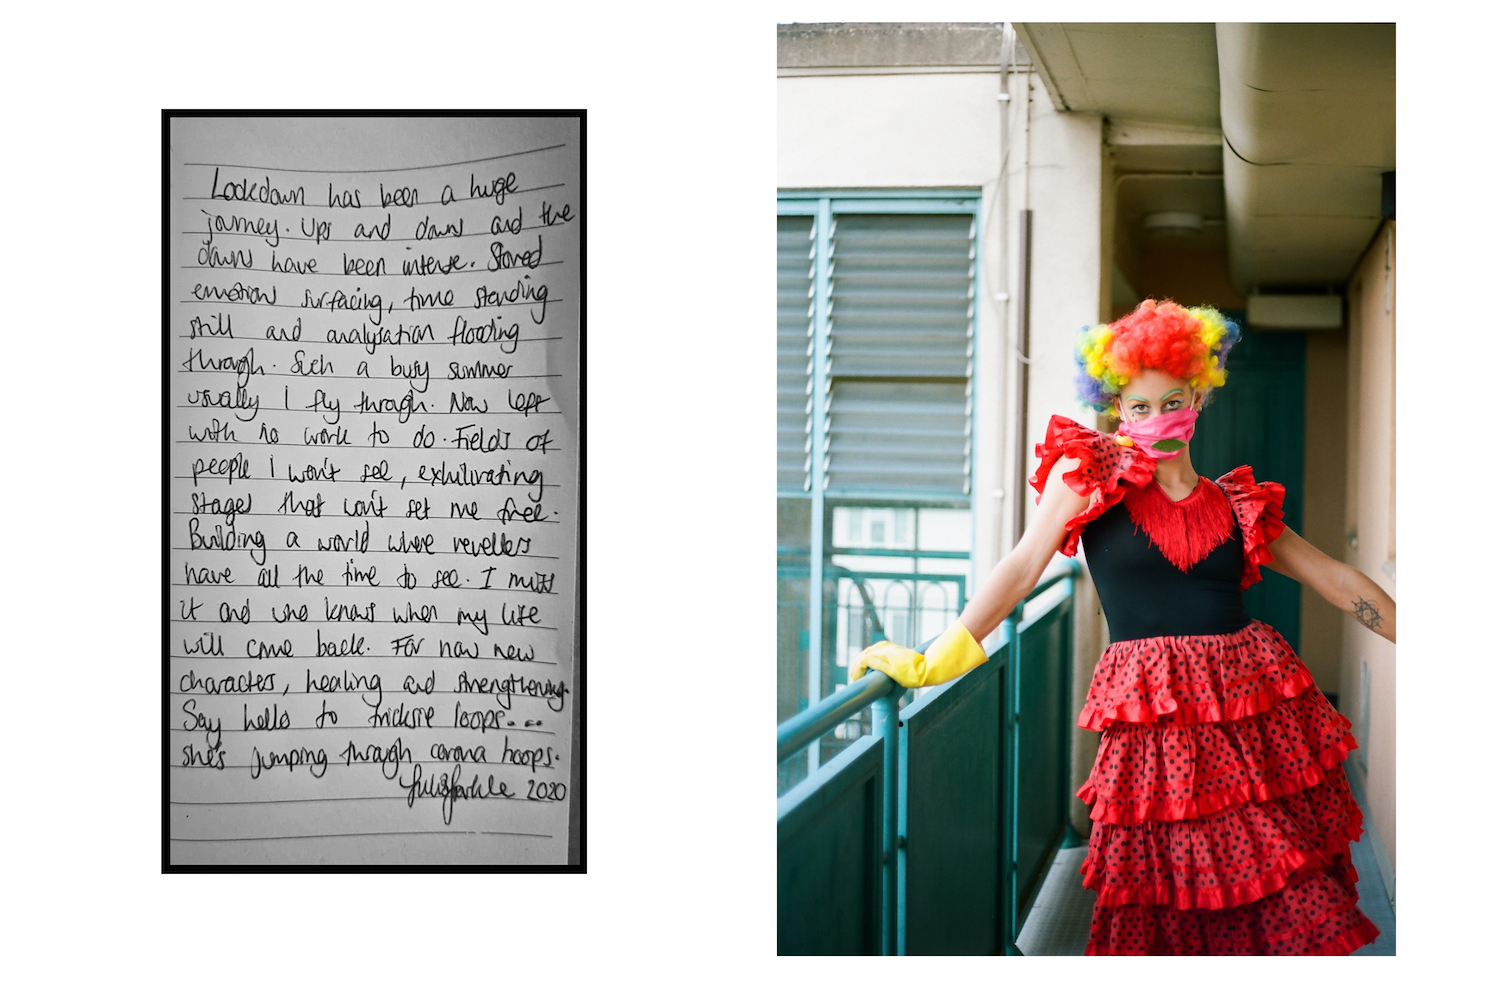 Lockdown has been a huge
journey. Ups and downs and the
downs have been intense. Stored
emotion surfacing, time standing
still and analysation flooding
through. Such a busy summer
usually I fly through. Now left
with no work to do. Fields of
people I won't see, exhilirating
stages that won't set me free.
Building a world where revellers
have all the time to see. I miss
it and who knows when my life
will come back. For now new
characters, healing and strengthening.
Say hello to tricksie loops...
she's jumping through corona hoops.
2020